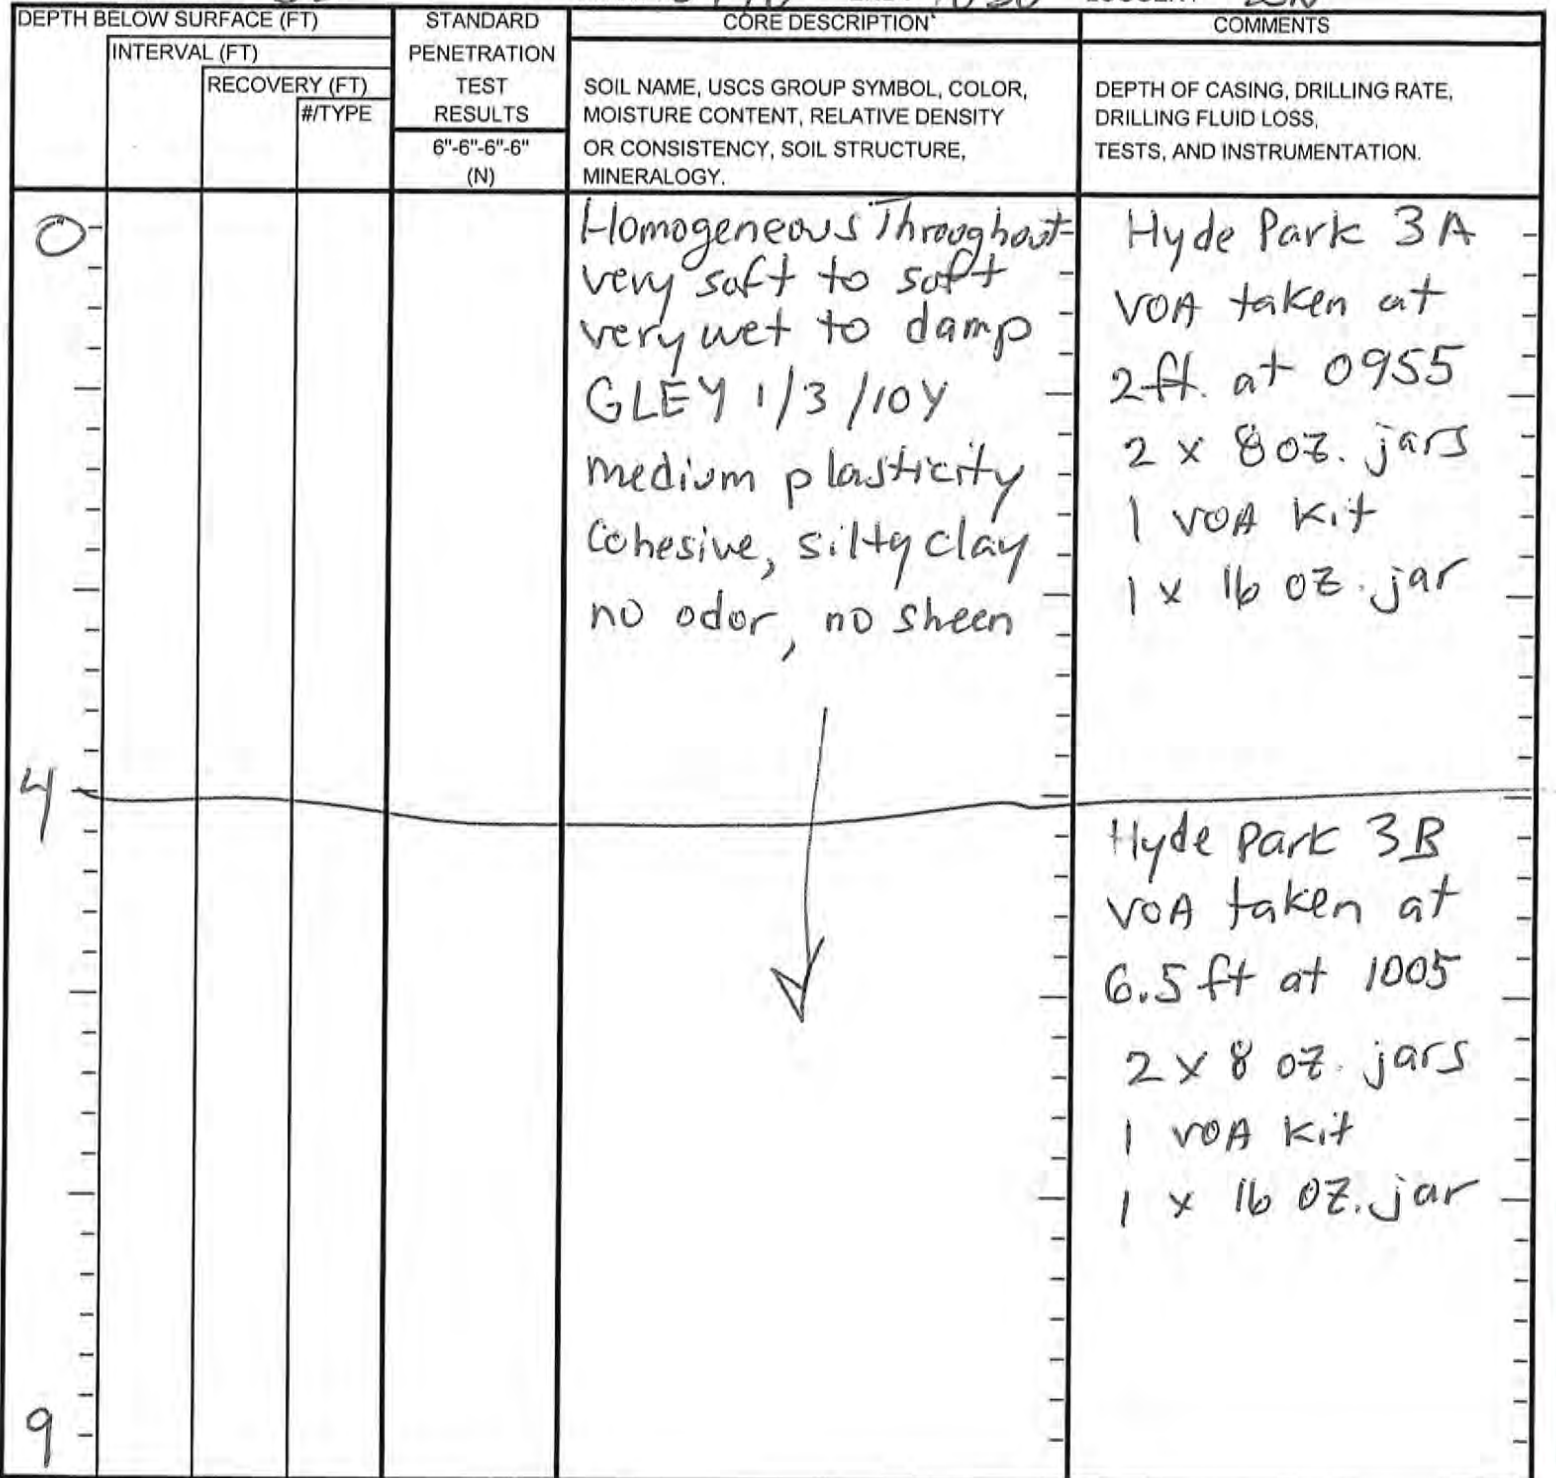 DEPTH BELOW SURFACE (FT)
INTERVAL (FT)
RECOVERY (FT)
#/TYPE
STANDARD
PENETRATION
TEST
RESULTS
6"-6"-6"-6"
(N)
CORE DESCRIPTION
SOIL NAME, USCS GROUP SYMBOL, COLOR,
MOISTURE CONTENT, RELATIVE DENSITY
OR CONSISTENCY, SOIL STRUCTURE,
MINERALOGY.
COMMENTS
DEPTH OF CASING, DRILLING RATE,
DRILLING FLUID LOSS,
TESTS, AND INSTRUMENTATION.
0
Homogeneous Throughout
very soft to soft
very wet to damp
GLEY 1/3/10Y
medium plasticity
Cohesive, silty clay
no odor, no sheen
Hyde Park 3A
VOA taken at
2ft. at 0955
2 x 8oz. jars
1 VOA Kit
1 x 16 oz. jar
4
Hyde Park 3B
VOA taken at
6.5 ft at 1005
2 x 8 oz. jars
1 VOA Kit
1 x 16 oz. jar
9